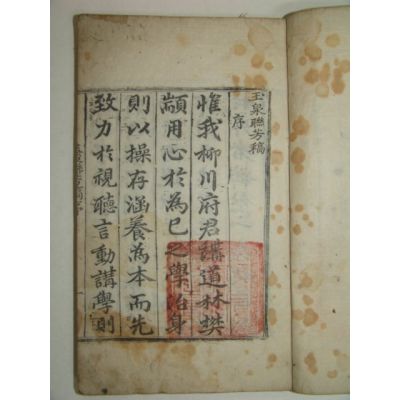 玉泉聯芳稿
序
惟我柳川府君講道林樊
顓用心於為己之學治身
則以操存涵養為本而先
致力於視聽言動講學則